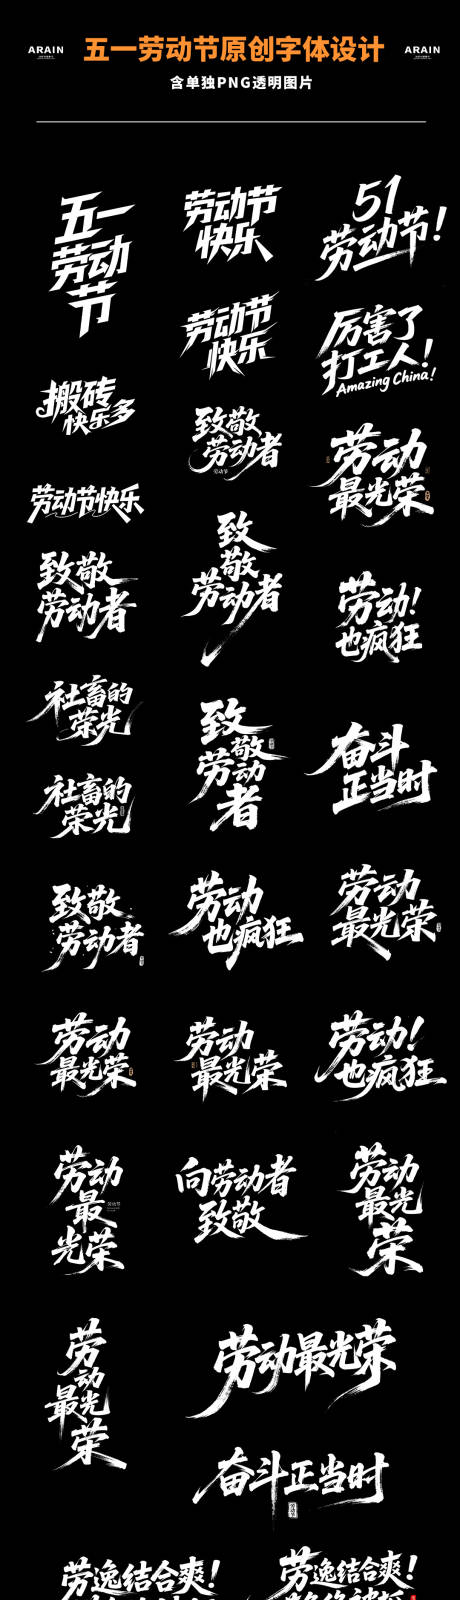 ARAIN
五一劳动节原创字体设计
ARAIN
含单独PNG透明图片
五一
劳动
节
劳动节
快乐
51
劳动节!
劳动节
快乐
厉害了
打工人!
Amazing China!
搬砖
快乐多
致敬
劳动者
劳动节
劳动
最光荣
劳动节快乐
致
敬
劳动者
致敬
劳动者
劳动!
也疯狂
社畜的
荣光
致
敬
劳动
者
奋斗
正当时
社畜的
荣光
致敬
劳动者
劳动
也疯狂
劳动
最光荣
劳动
最光荣
劳动
最光荣
劳动!
也疯狂
劳动
最
光荣
向劳动者
致敬
劳动
最光
荣
劳
动
最光
荣
劳动最光荣
奋斗正当时
劳逸结合爽!
劳逸结合爽!